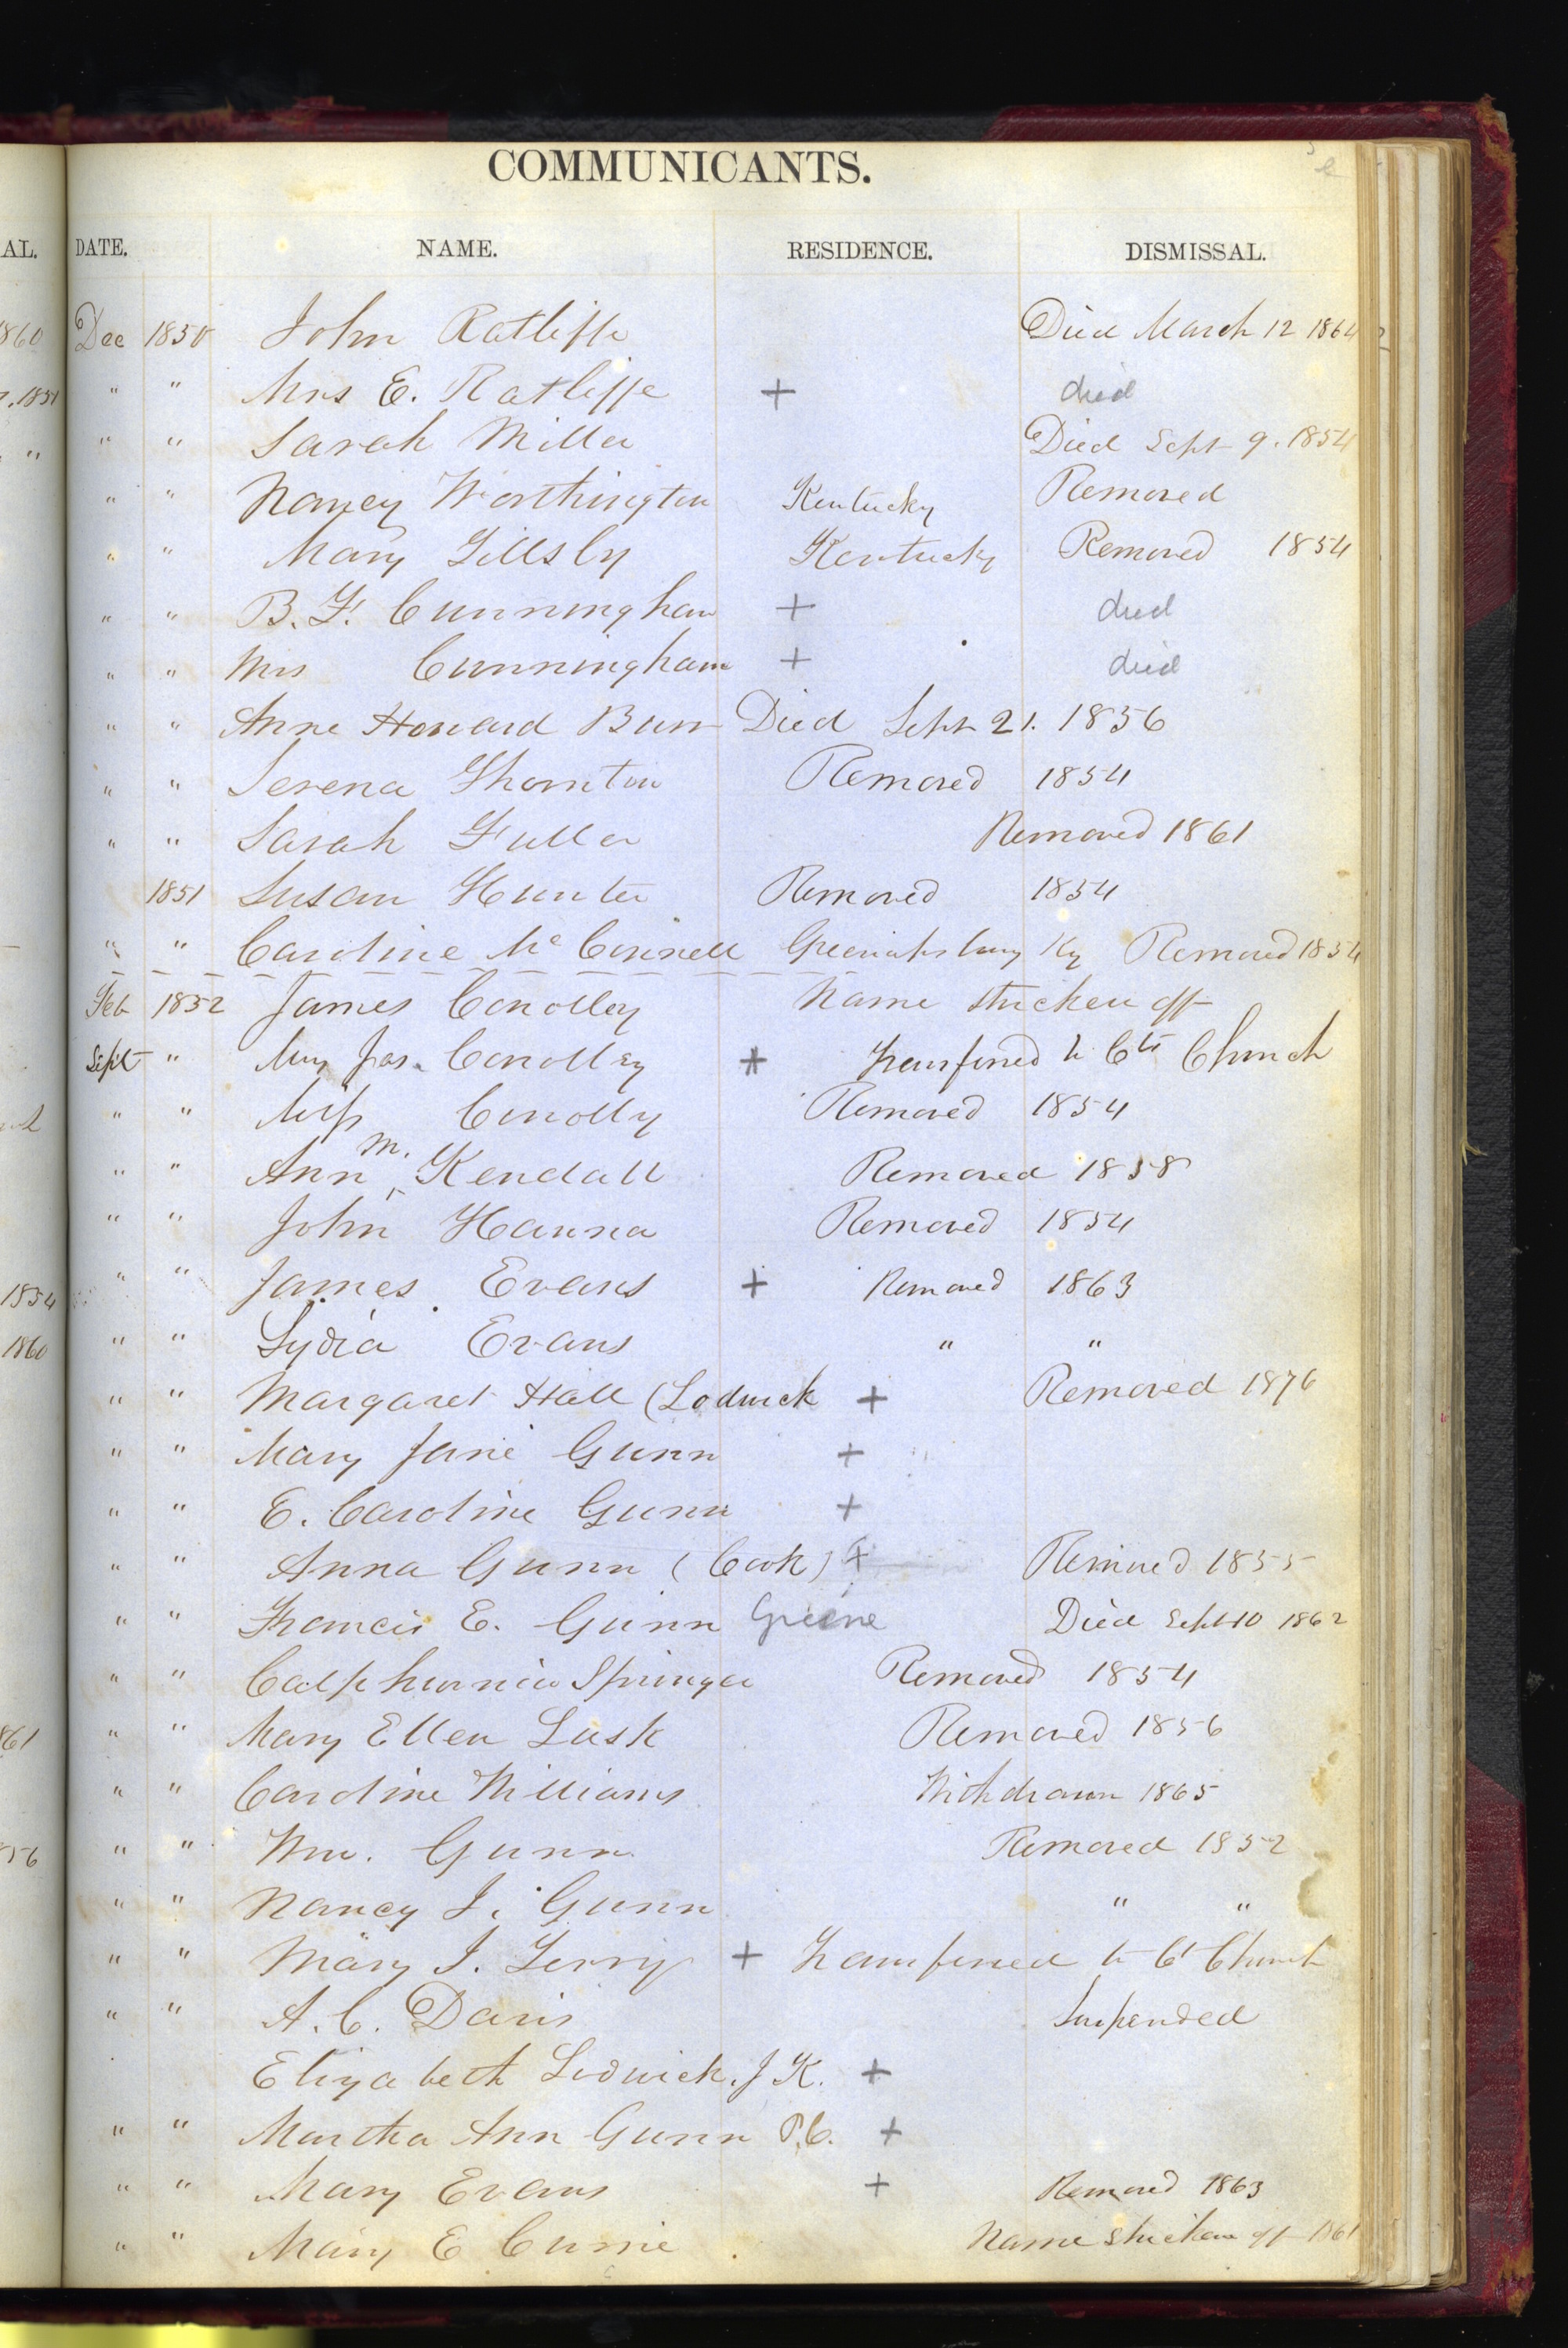 COMMUNICANTS.
AL. DATE. NAME. RESIDENCE. DISMISSAL.
1860 Dec 1850 John Ratliffe Died March 12 1864
1851 " " Mrs E. Ratliffe + died
" " " Sarah Miller Died Sept 9. 1854
" " Nancy Worthington Kentucky Removed
" " Mary Gillsby Kentucky Removed 1854
" " B. F. Cunningham + died
" " Mrs Cunningham + died
" " Anne Howard Burr Died Sept 21. 1856
" " Serena Thornton Removed 1854
" " Sarah Fuller Removed 1861
1851 Susan Hunter Removed 1854
" " Caroline Mc Connell Ky Removed 1854
Feb 1852 James Conolley Name stricken off
Sept " Mrs Jas. Conolley + Transferred to Church
" " Miss Conolly Removed 1854
" " Ann M. Kendall Removed 1858
" " John Hanna Removed 1854
1854 " " James Evans + Removed 1863
1860 " " Lydia Evans " "
" " Margaret Hall (Lodwick + Removed 1876
" " Mary Jane Gunn +
" " E. Caroline Gunn +
" " Anna Gunn (Cook) + Removed 1855
" " Francis E. Gunn Greene Died Sept 10 1862
" " Calphurnia Springer Removed 1854
861 " " Mary Ellen Lusk Removed 1856
" " Caroline Williams Withdrawn 1865
56 " " Wm. Gunn Removed 1852
" " Nancy J. Gunn " "
" " Mary J. Terry + Transferred to Ct Church
" " A. C. Davis Suspended
Elizabeth Lodwick. J K. +
" " Martha Ann Gunn P.C. +
" " Mary Evans + Removed 1863
" " Mary E Currie Name stricken off 1861